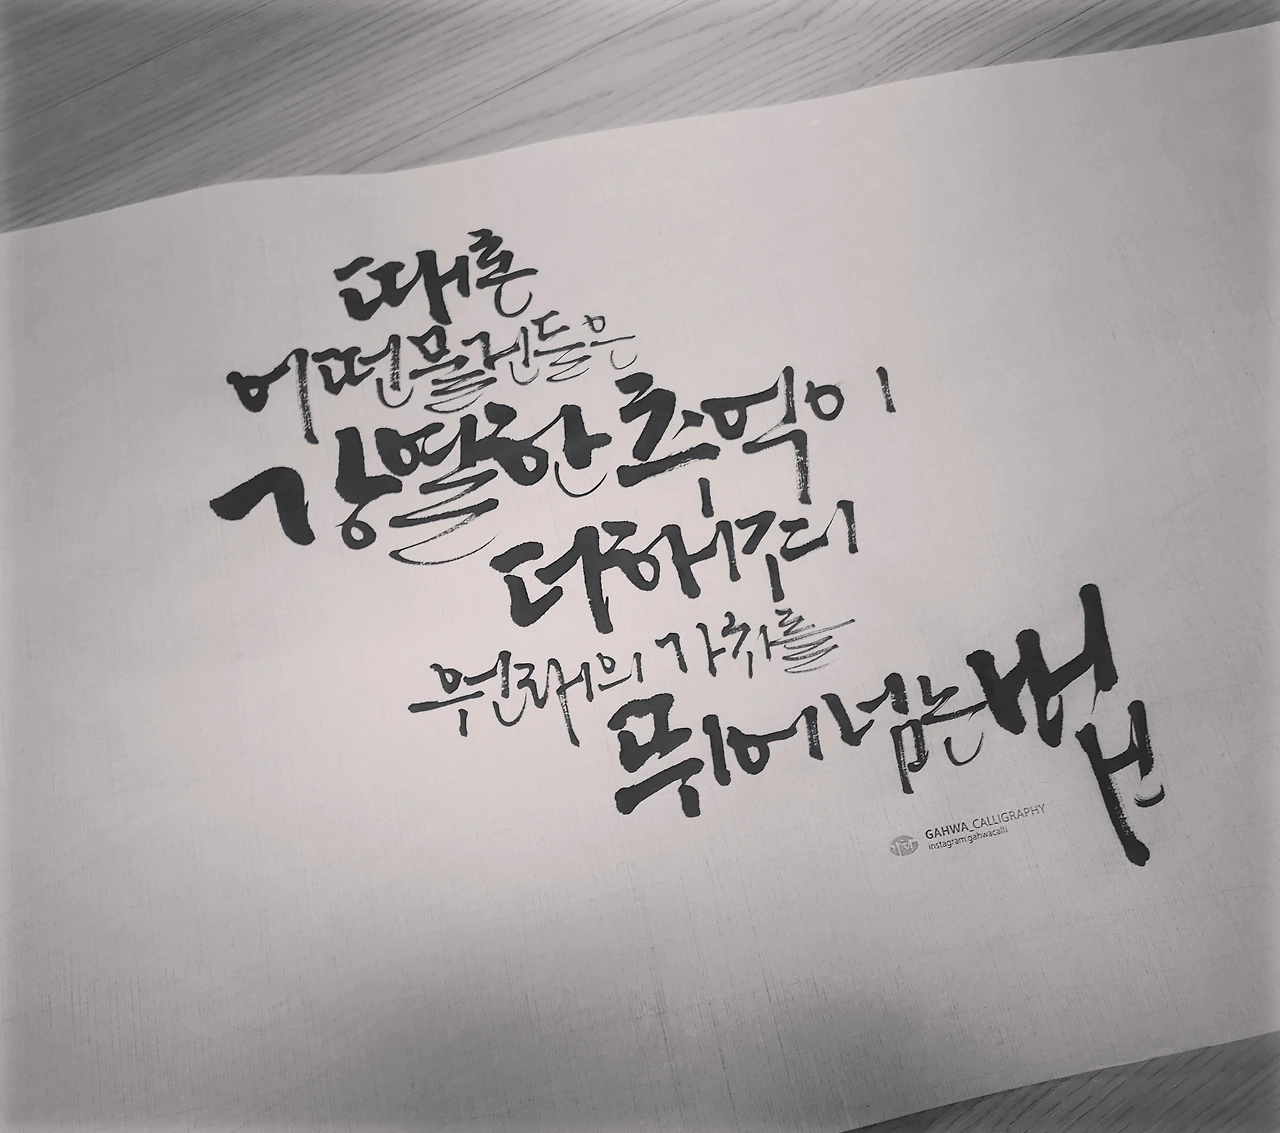 때론
어떤물건들은
강열한 추억이
원래의 가치를
뛰어넘는법
GAHWA_CALLIGRAPHY
instagram:gahwacalli